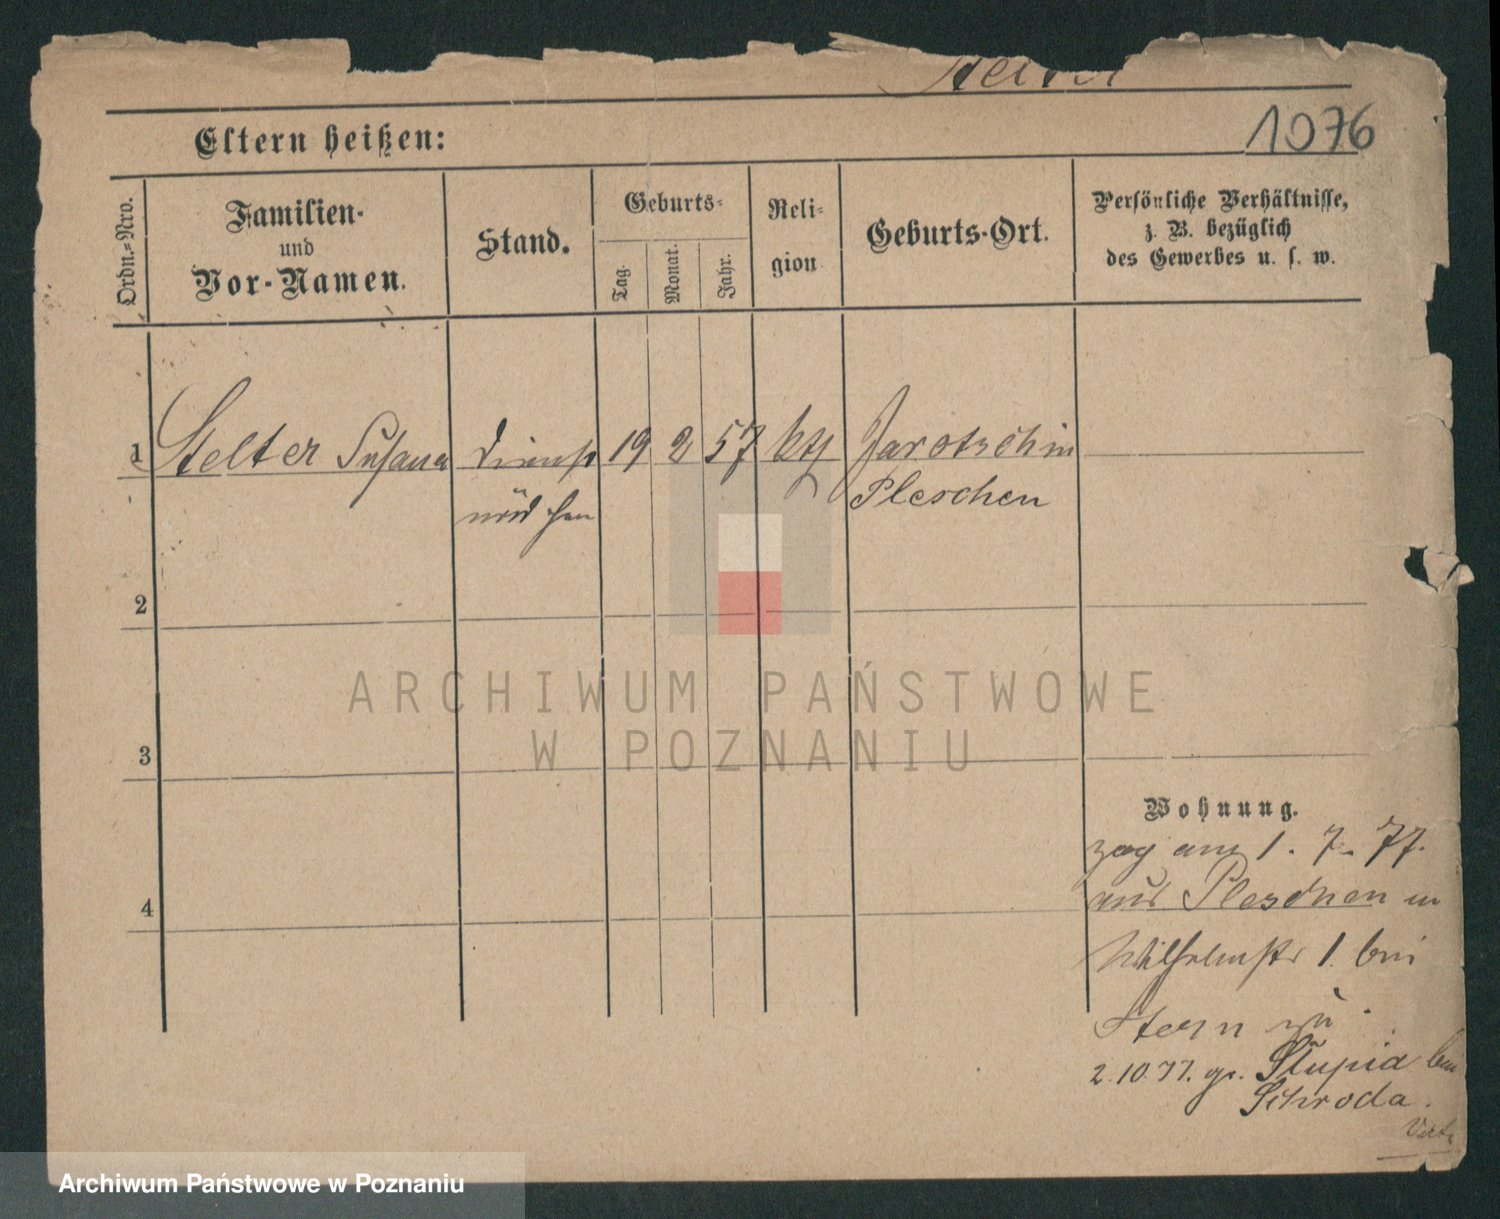 Stelter
1076
Eltern heißen:
Ordn.=Nro.
Familien-
und
Vor-Namen.
Stand.
Geburts=
Tag.
Monat.
Jahr.
Reli=
gion
Geburts-Ort.
Persönliche Verhältnisse,
z. B. bezüglich
des Gewerbes u. s. w.
1 Stelter Susana Dienst 19 2 57 kth Jarotschin
mädchen Pleschen
2
ARCHIWUM PAŃSTWOWE
W POZNANIU
3
Wohnung.
zog am 1. 7. 77.
aus Pleschen in
Wilhelmstr 1. bei
Stern zu
4
2.10.77. gr. Slupia bei
Schroda.
Archiwum Państwowe w Poznaniu